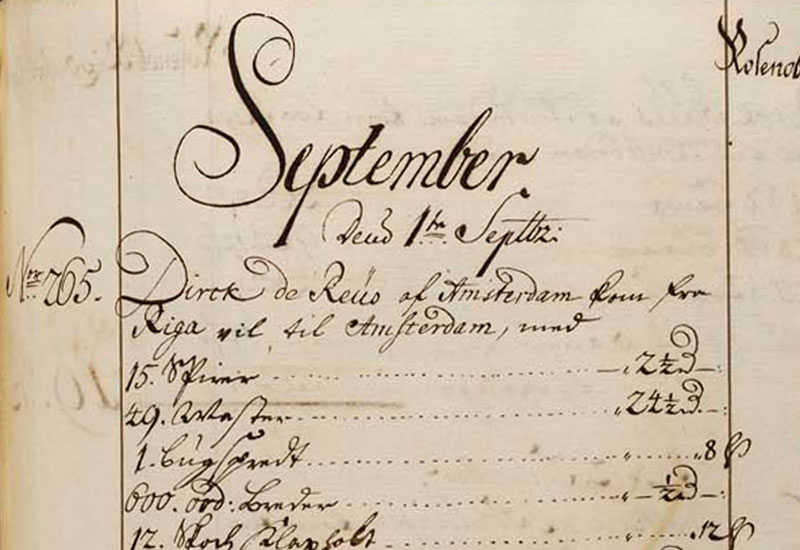 Rosenob
September.
Dend 1te Septbr:
Nro 265. Dirck de Reus af Amsterdam kom fra
Riga vil til Amsterdam, med
15. Spirer 2½
49. Master 24½
1. bugspredt 8
600. ord: Breder ½
12. Skock Klapholt 12